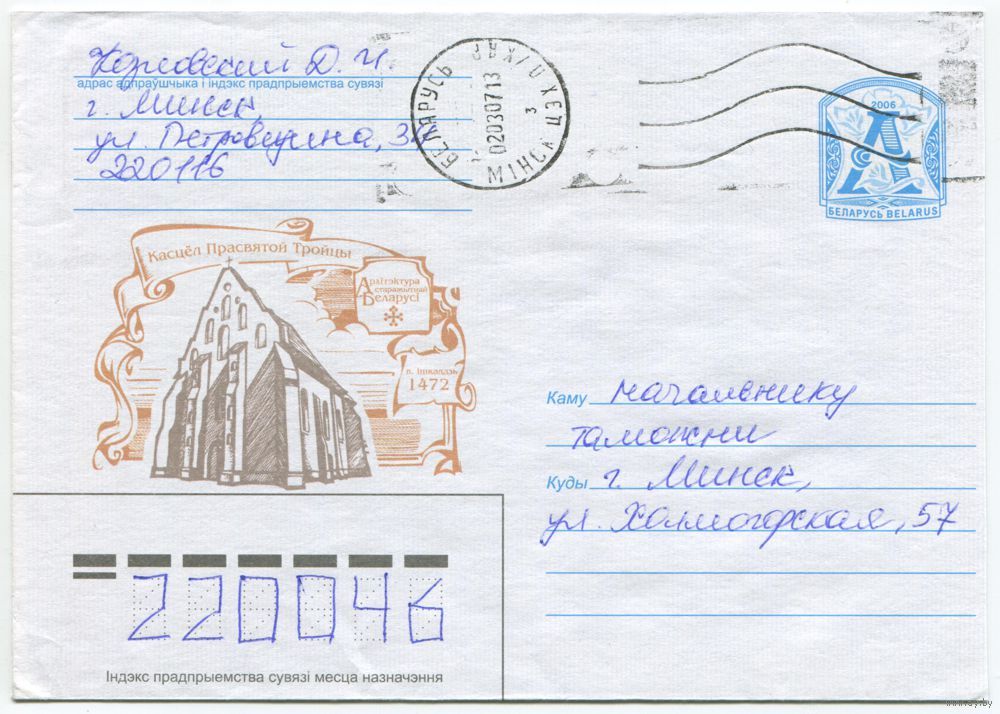 Козловский Д. И.
адрас адпраўшчыка і індэкс прадпрыемства сувязі
г. Минск,
ул. Петровщина, 3
220116
БЕЛАРУСЬ
020307 13
3
МІНСК
2006
А
БЕЛАРУСЬ BELARUS
Касцёл Прасвятой Тройцы
Архітэктура
старажытнай
Беларусі
в. Ішкалдзь
1472
Каму начальнику
таможни
Куды г. Минск,
ул. Холмогорская, 57
220046
Індэкс прадпрыемства сувязі месца назначэння